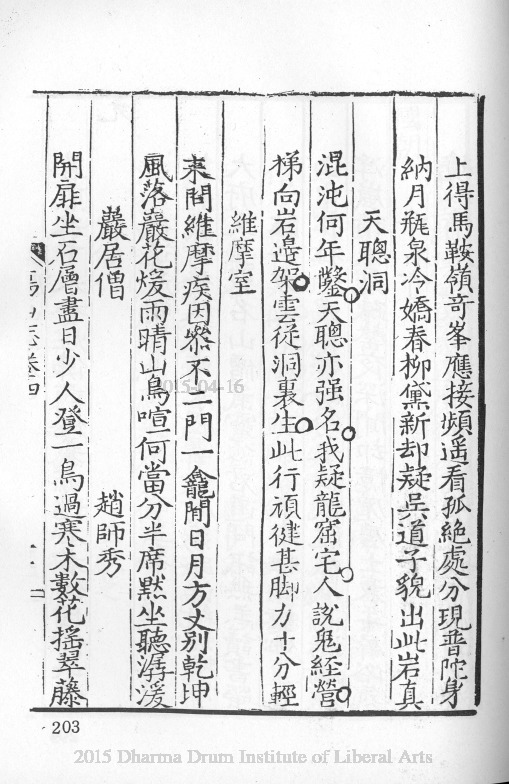 上得馬鞍嶺竒峯應接頻遥看孤絶處分現普陀身
納月瓶泉冷嬌春柳黛新却疑吳道子貌出此岩真
天聰洞
混沌何年鑿天聰亦强名我疑龍窟宅人說鬼經營
梯向岩邉架雲從洞裏生此行頑健甚脚力十分輕
維摩室
来問維摩疾因叅不二門一龕開日月方丈别乾坤
風落巖花煖雨晴山鳥喧何當分半席默坐聽潺湲
巖居僧 趙師秀
開扉坐石層盡日少人登一鳥過寒木數花摇翠藤
203
2015-04-16
2015 Dharma Drum Institute of Liberal Arts